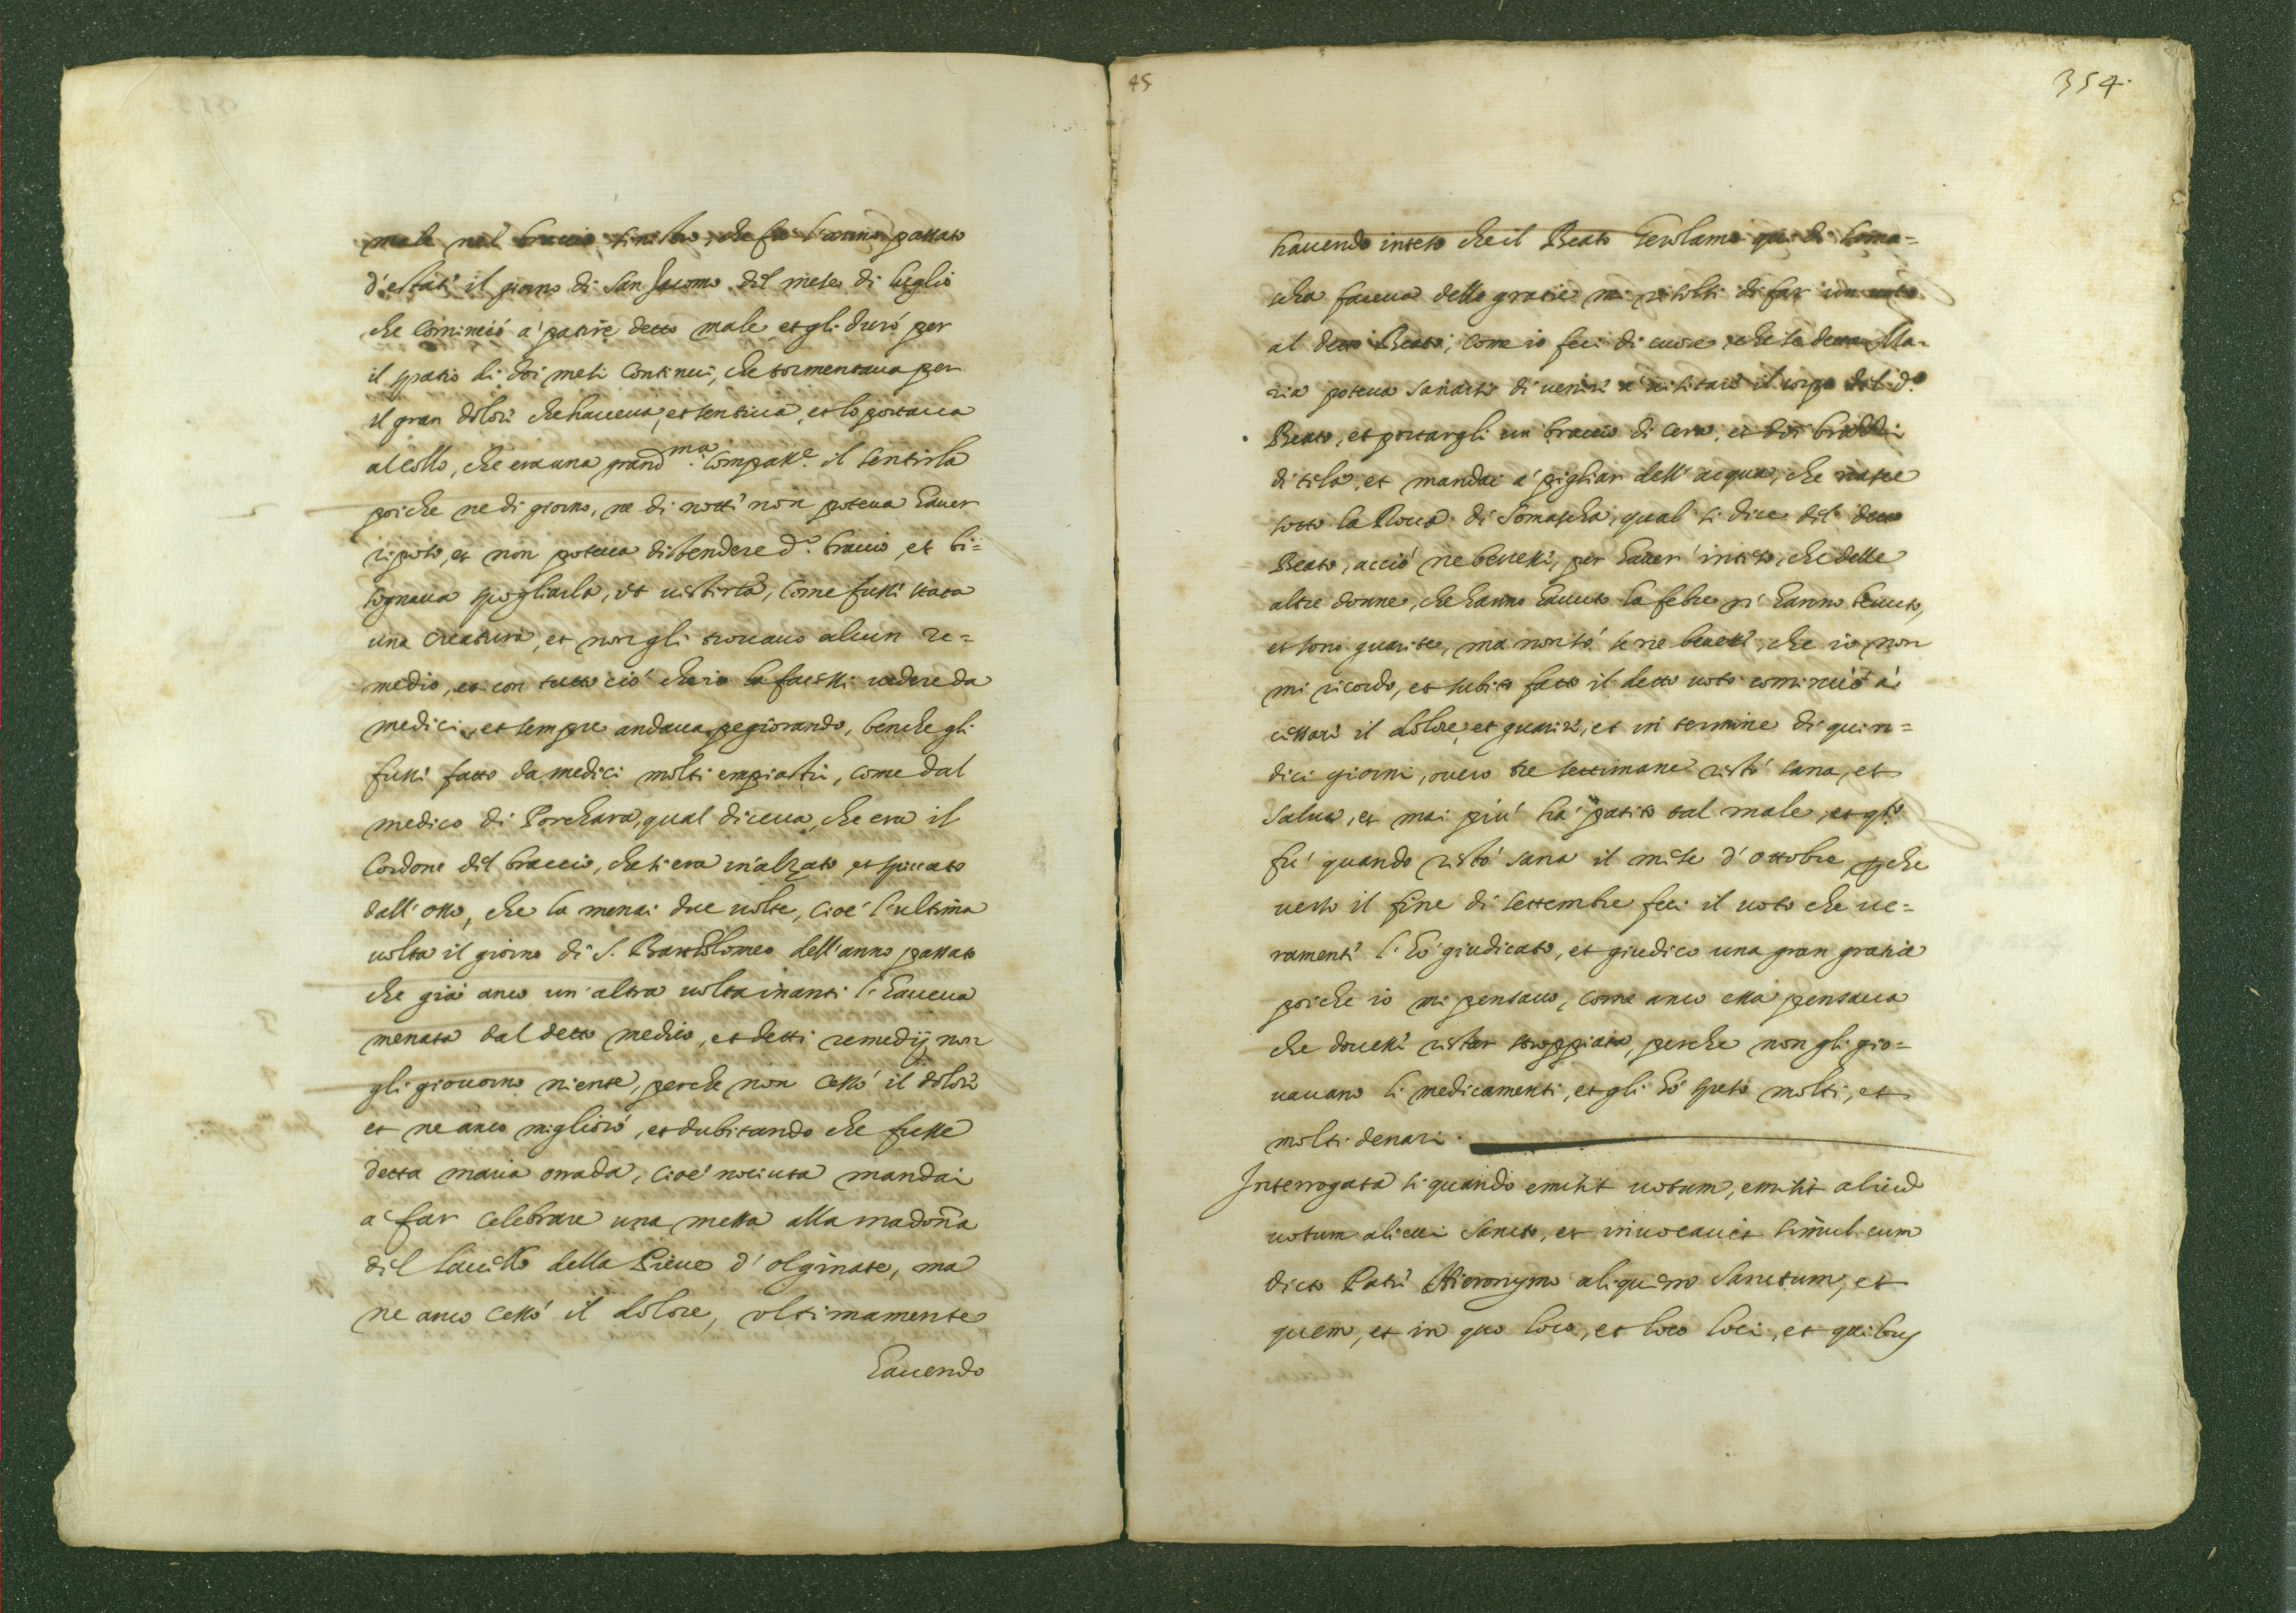 male nel braccio sinistro, che fu l'anno passato
d'estate il giorno di San Jacomo del mese di luglio
che cominciò a' patire detto male, et gli durò per
il spatio di doi mesi continui, che tormentava per
il gran dolore che haveva, et sentiva, et lo portava
al collo, che era una grand.ma compass.e il sentirla
poiche ne di giorno, ne di notte non poteva haver
riposo, et non poteva distendere d.o braccio, et bi=
sognava spogliarla, et vestirla, come fusse stata
una creatura, et non gli trovavo alcun re=
medio, et con tutto ciò che io la facessi vedere da
medici, et sempre andava pegiorando, benche gli
fussi fatto da medici molti empiastri, come dal
medico di Porchara, qual diceva, che era il
Cordone del braccio, che si era inalzato, et spiccato
dall'osso, che la menai due volte, cioè l'ultima
volta il giorno di S. Bartholomeo dell'anno passato
che già anco un'altra volta inanti l'haveva
menata dal detto medico, et detti remedij non
gli giovorno niente, perche non cessò il dolore
et ne anco migliorò, et dubitando che fusse
detta maria orrada, cioè nociuta mandai
a' far celebrare una messa alla madonna
del della Pieve d'olginate, ma
ne anco cessò il dolore, ultimamente
havendo
45
354.
havendo inteso che il Beato Gerolamo qui di Soma=
scha faceva delle gratie mi risolsi di far un voto
al detto Beato, come io feci di cuore, che se detta Ma=
ria poteva sanarsi di venire a' visitare il corpo del d.o
Beato, et portargli un braccio di cera, et doi
di tela, et mandai a' pigliar dell'acqua, che nasce
sotto la Rocca di Somascha, qual si dice del detto
Beato, acciò ne bevesse, per haver inteso, che delle
altre donne, che hanno havuto la febre n'hanno bevuto,
et sono guarite, ma non so' se ne bevesse, che io non
mi ricordo, et subito fatto il detto voto cominciò à
cessare il dolore, et guarire, et in termine di quin=
dici giorni, overo tre settimane restò sana, et
salva, et mai più hà patito tal male, et gli
fu' quando restò sana il mese d'ottobre, perche
verso il fine di settembre feci il voto che ve=
ramente l'hò giudicato, et giudico una gran gratia
poiche io mi pensavo, come anco essa pensava
che dovesse restar stroppiata, perche non gli gio=
vavano li medicamenti, et gli hò speso molti, et
molti denari.
Interrogata si quando emisit votum, emisit aliud
votum alicui Sancto, et invocavit simul cum
dicto Patre Hieronymo aliquem Sanctum, et
quem, et in quo loco, et loco loci, et quibus